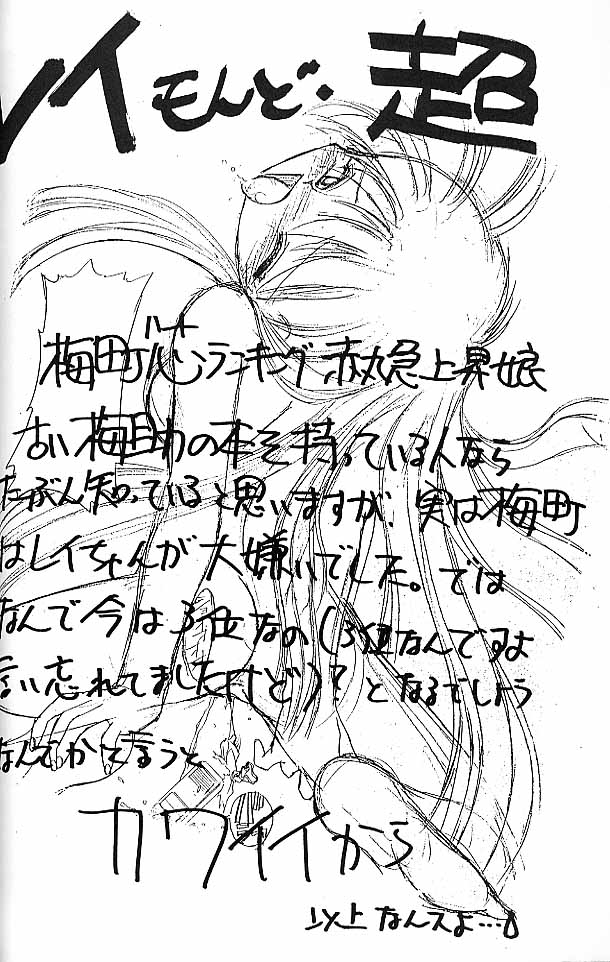 レイ もんど・超
梅町心ランキング赤丸急上昇娘
ハート
古い梅町の本を持っている人なら
たぶん知っていると思いますが、実は梅町
はレイちゃんが大嫌いでした。では
なんで今は3位なの(3位なんですよ
言い忘れてましたけど)?となるでしょう
なんでかと言うと
カワイイから
以上なんスよ…。